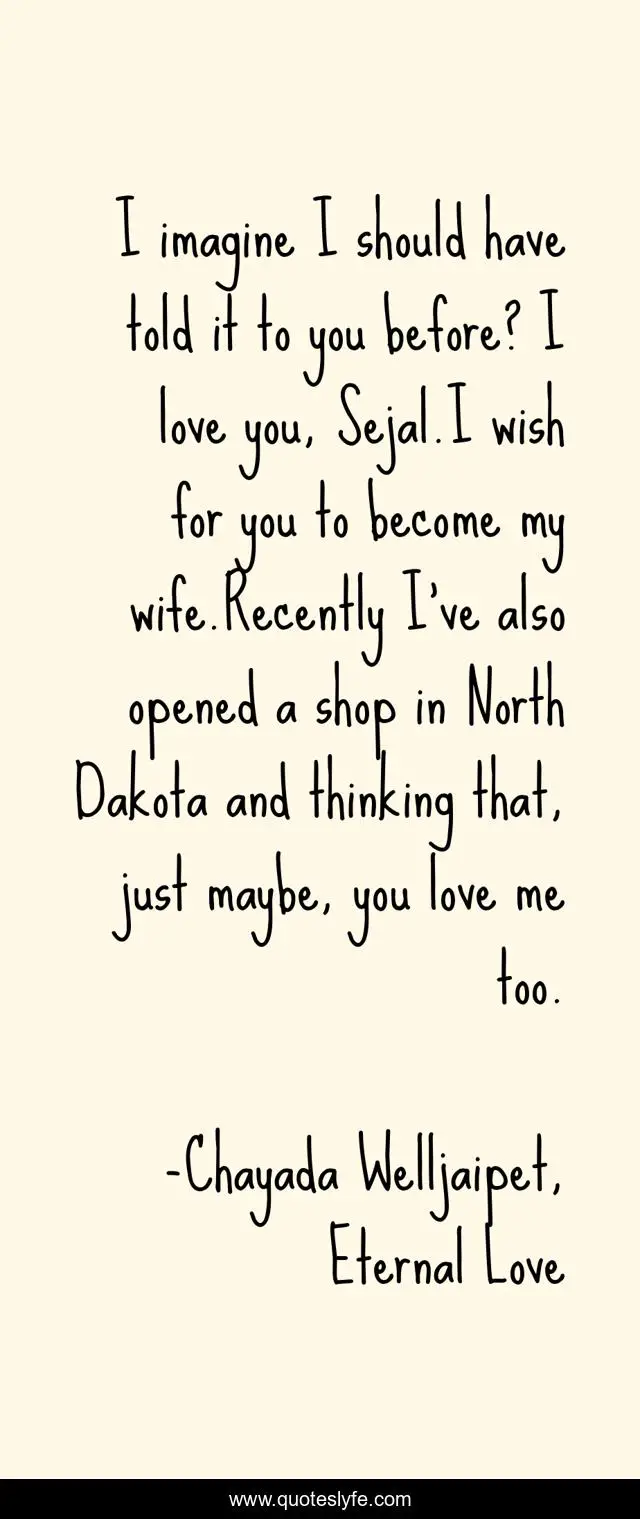 I imagine I should have
told it to you before? I
love you, Sejal.I wish
for you to become my
wife.Recently I've also
opened a shop in North
Dakota and thinking that,
just maybe, you love me
too.
-Chayada Welljaipet,
Eternal Love
www.quoteslyfe.com